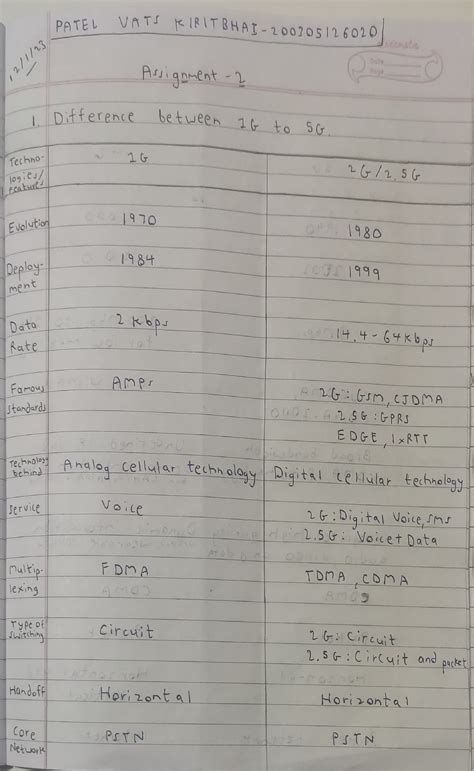 PATEL VATS KIRITBHAI-200305126020
12/1/23
Date
Page
Assignment-2
1. Difference between 1G to 5G
Techno-
logies/
Features
1G
2G/2.5G
Evolution
1970
1980
Deploy-
ment
1984
1999
Data
Rate
2 kbps
14.4-64kbps
Famous
standards
AMPs
2G: GSM, CJDMA
2.5G: GPRS
EDGE, 1xRTT
Technology
behind
Analog cellular technology
Digital cellular technology
service
Voice
2G: Digital Voice, SMS
2.5G: Voice+Data
Multip-
lexing
FDMA
TDMA, CDMA
Type of
switching
Circuit
2G: Circuit
2.5G: Circuit and packet
Handoff
Horizontal
Horizontal
Core
Network
PSTN
PSTN